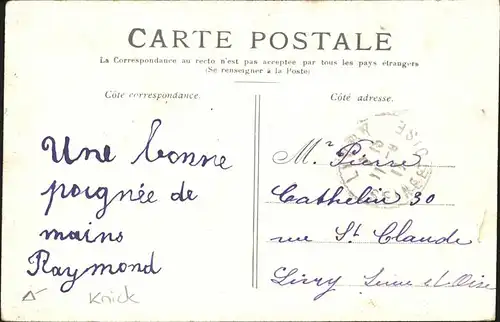 CARTE POSTALE
La Correspondance au recto n'est pas acceptée par tous les pays étrangers
(Se renseigner à la Poste)
Côté correspondance.
Côté adresse.
Une bonne
poignée de
mains
Raymond
Knick
Mr Pierre
Cathelin 30
rue St Claude
Livry Seine et Oise